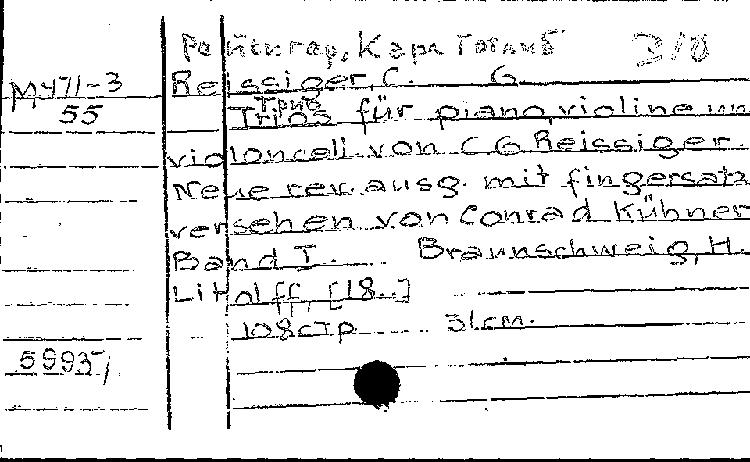 Рейсигер, Карл Готлиб 3/8
МУ71-3 Reissiger, C. G
55 Трио
Trios für piano, violine un
violoncell. von C G Reissiger.
Neue rev. ausg. mit fingersatz
versehen von Conrad Kühner
Band I. Braunschweig, H.
Litolff, [18..]
108стр 31см.
5993